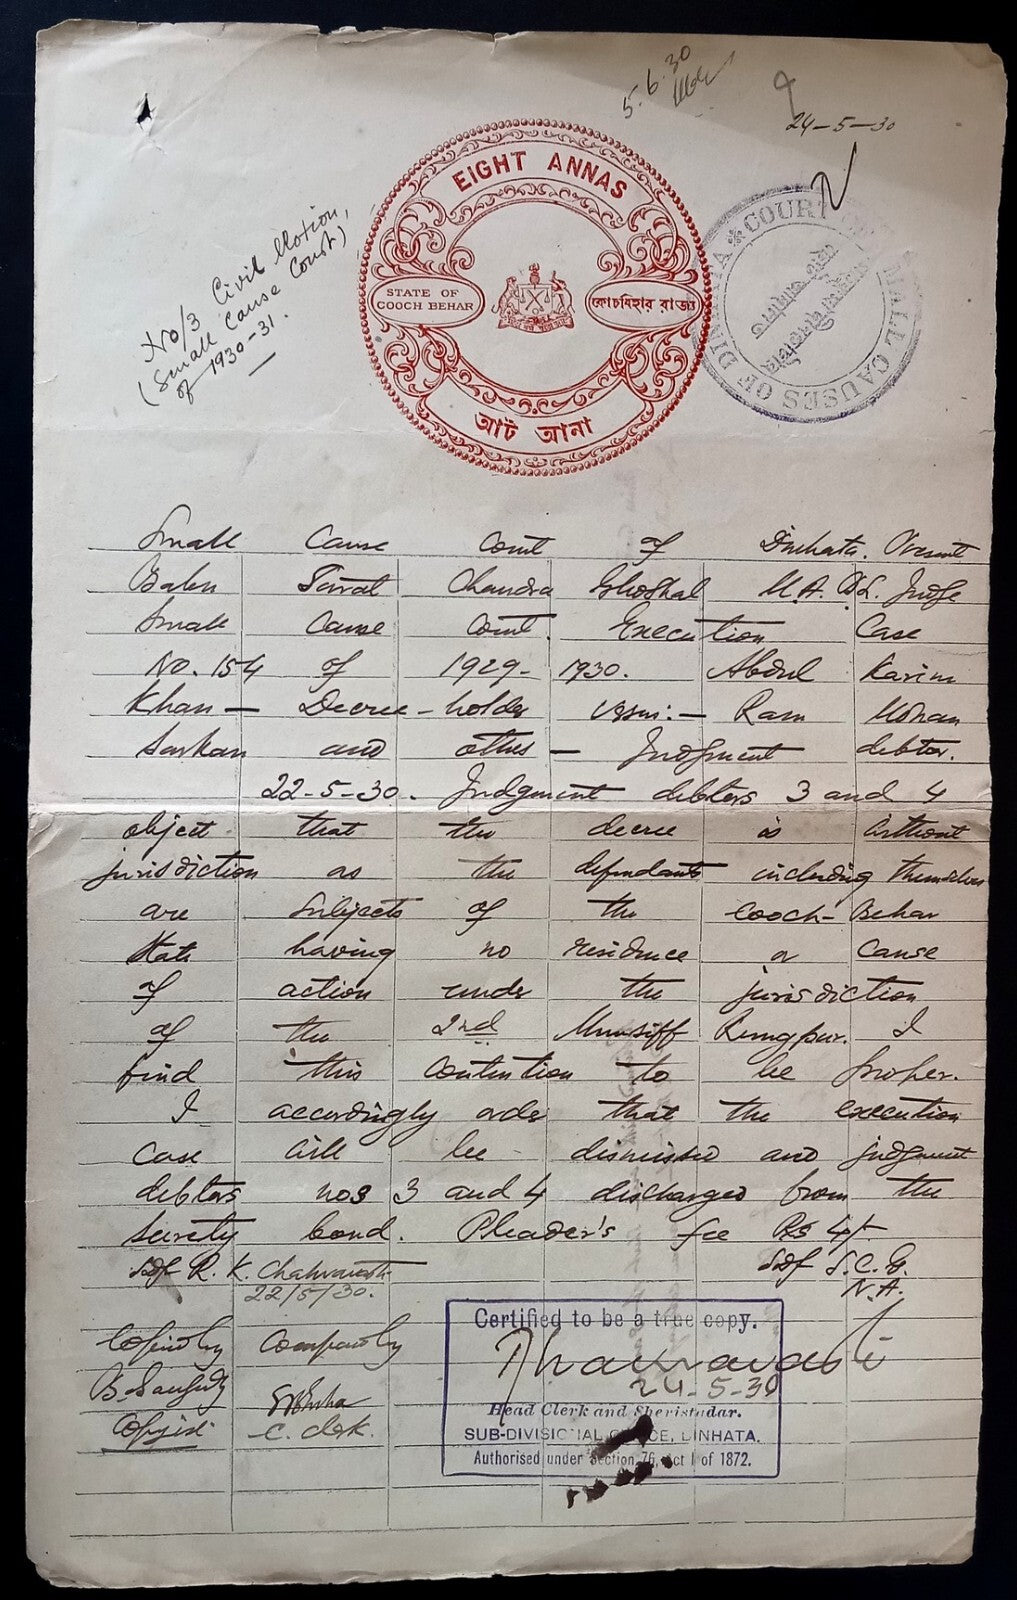 5.6.30
24-5-30
No/3 Civil Motion,
(Small Cause Court)
of 1930-31.
EIGHT ANNAS
STATE OF
COOCH BEHAR
কোচবিহার রাজ্য
আট আনা
COURT OF SMALL CAUSES OF DINHATA
Small Cause Court of Dinhata. Present
Babu Sarat Chandra Ghoshal M.A. B.L. Judge
Small Cause Court. Execution Case
No. 154 of 1929-1930. Abdul Karim
Khan — Decree-holder versus:— Ram Mohan
Sarkar and others — Judgment debtor.
22-5-30. Judgment debtors 3 and 4
object that the decree is without
jurisdiction as the defendants including themselves
are subjects of the Cooch-Behar
State having no residence or cause
of action under the jurisdiction
of the 2nd Munsiff Rungpur. I
find this contention to be proper.
I accordingly order that the execution
case will be dismissed and judgment
debtors nos 3 and 4 discharged from the
surety bond. Pleader's fee Rs 4/-
Sd/- R. K. Chakravarti Sd/- S.C.G.
22/5/30. N.A.
Certified to be a true copy.
24-5-30
Head Clerk and Sheristadar.
SUB-DIVISIONAL OFFICE, DINHATA.
Authorised under Section 76, Act I of 1872.
Copied by Compared by
Copyist C. clerk.